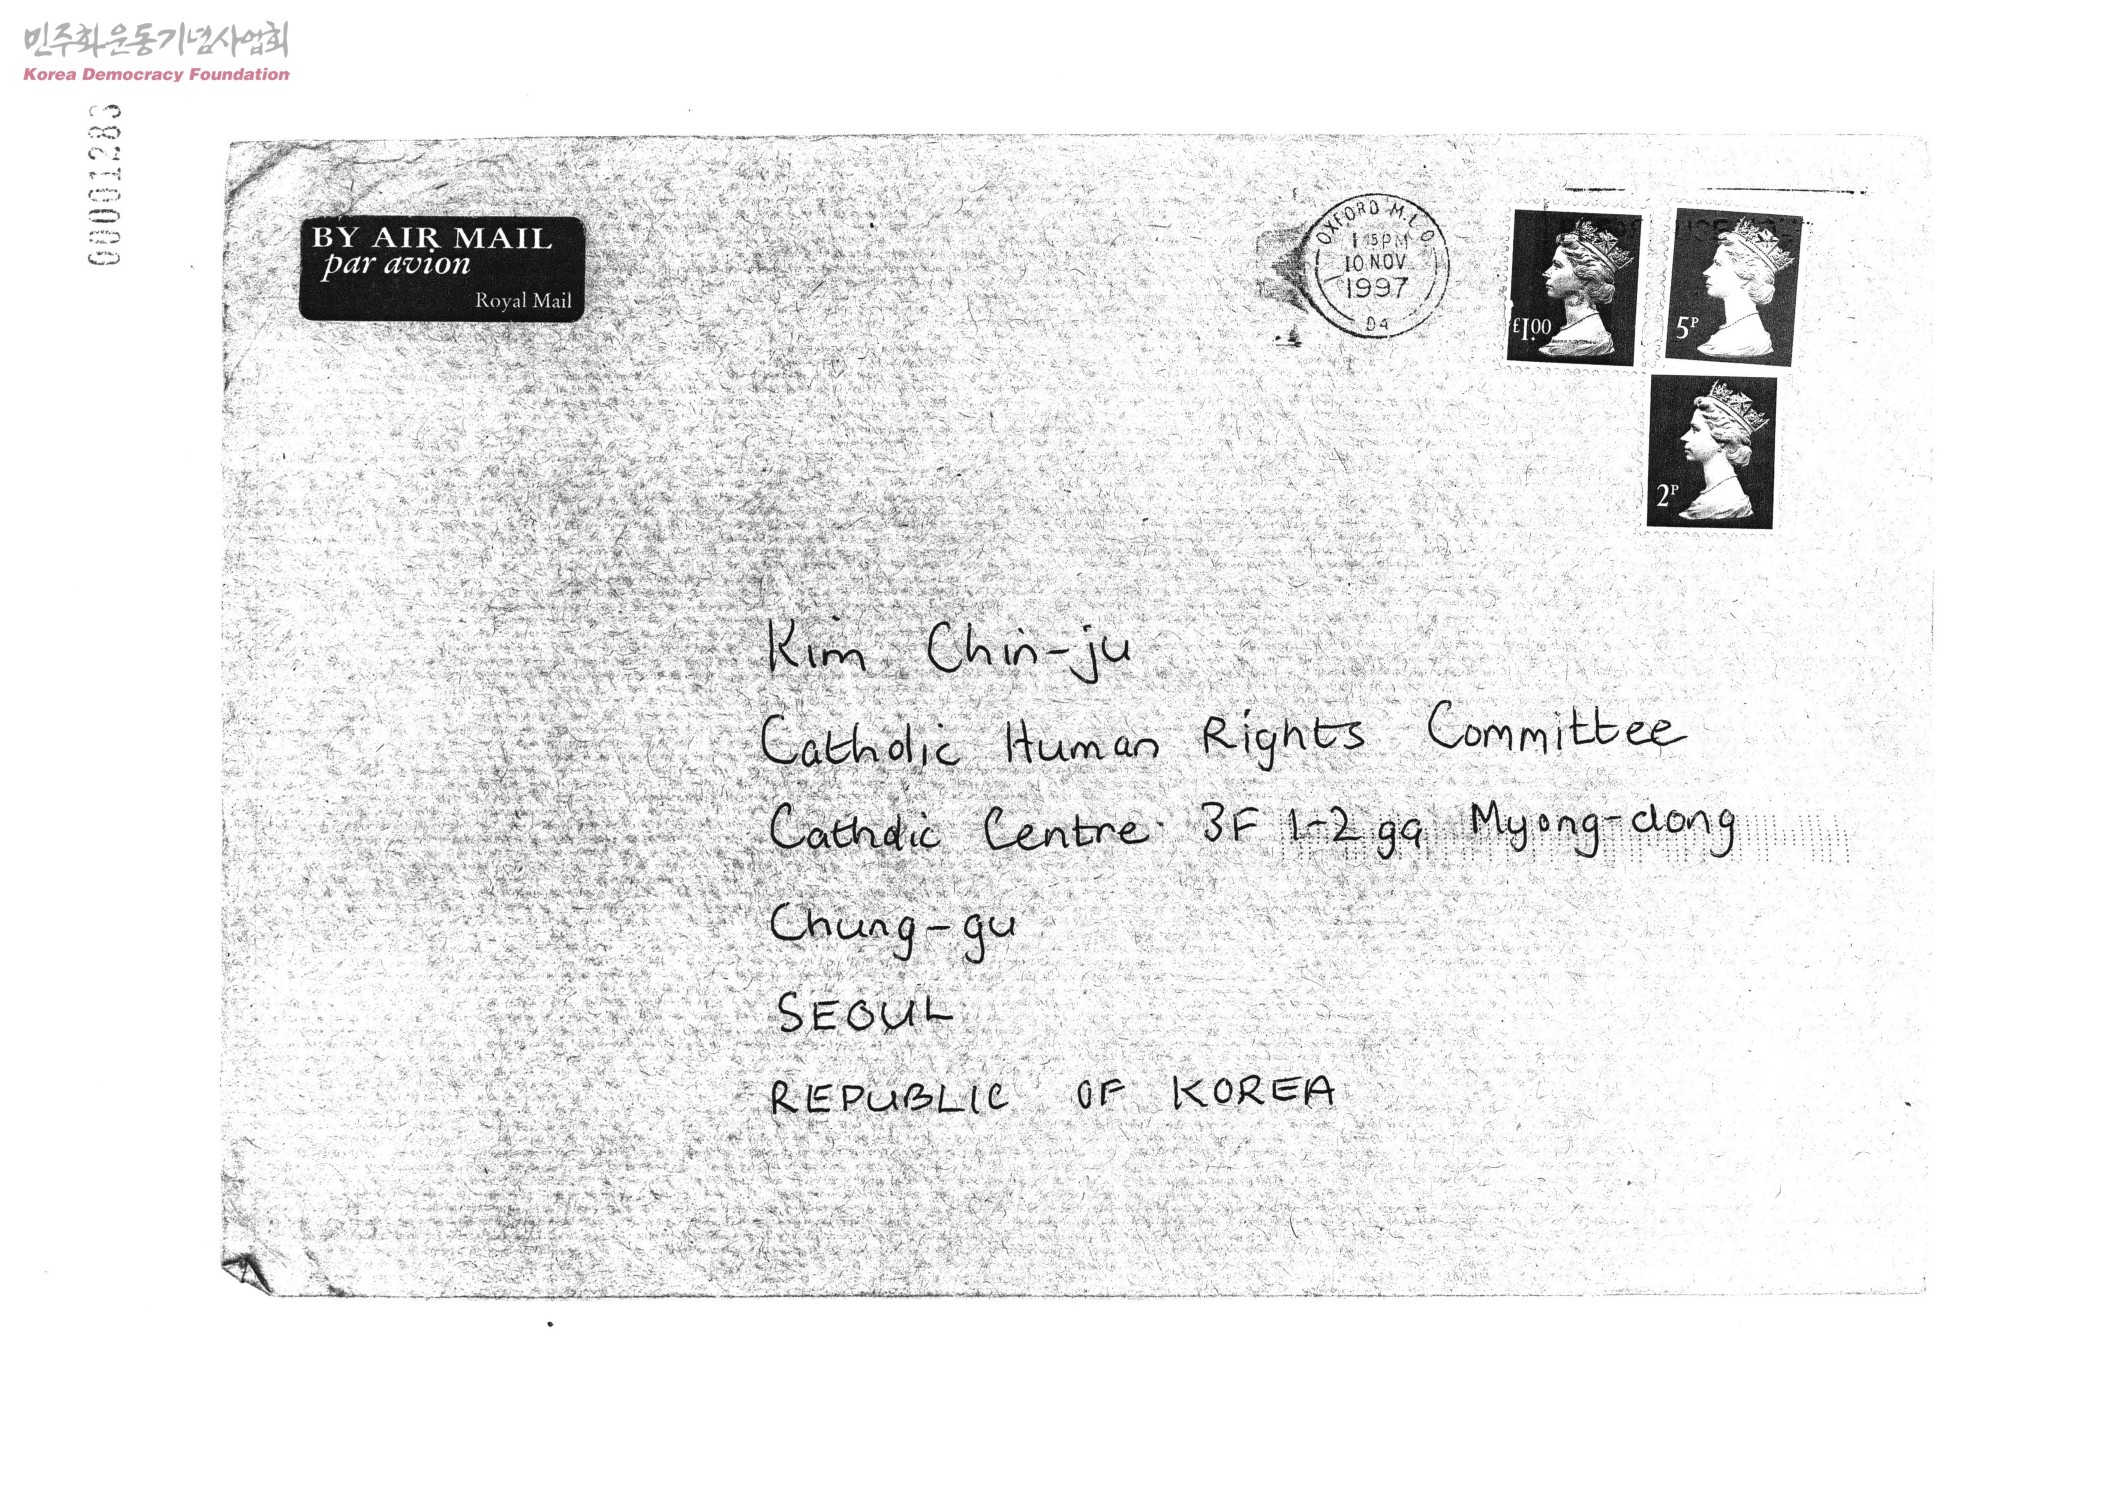 민주화운동기념사업회
Korea Democracy Foundation
00001283
BY AIR MAIL
par avion
Royal Mail
OXFORD M.L.O.
10 NOV
1997
04
£1.00
5P
2P
Kim Chin-ju
Catholic Human Rights Committee
Catholic Centre 3F 1-2 ga Myong-dong
Chung-gu
SEOUL
REPUBLIC OF KOREA